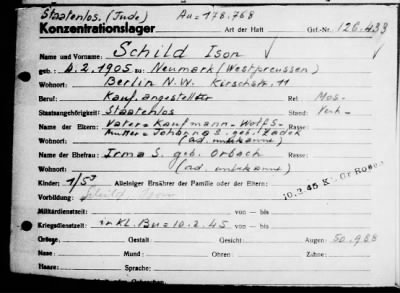 Staatenlos. (Jude) Au = 178.768
Konzentrationslager Art der Haft Gef.-Nr. 126.433
Name und Vorname: Schild Ison
geb.: 6.2.1905 zu: Neumark (Westpreussen)
Wohnort: Berlin N.W. Kirschstr. 11
Beruf: Kauf. angestellter Rel. Mos-
Staatsangehörigkeit: Staatenlos Stand: Verh-
Name der Eltern: Vater = Kaufmann - Wolf S- Rasse:
Mutter = S. geb. Zadek
Wohnort: (ad. unbekannt)
Name der Ehefrau: Irma S. geb. Orbach Rasse:
Wohnort: (ad. unbekannt)
Kinder: 1/5 J Alleiniger Ernährer der Familie oder der Eltern:
Vorbildung: Schild Ison 10.2.45 KL Gr Rosen
Militärdienstzeit: von — bis
Kriegsdienstzeit: in Kl. Bu = 10.2.45 von — bis
Grösse: Gestalt: Gesicht: Augen: 50.968
Nase: Mund: Ohren: Zähne:
Haare: Sprache: